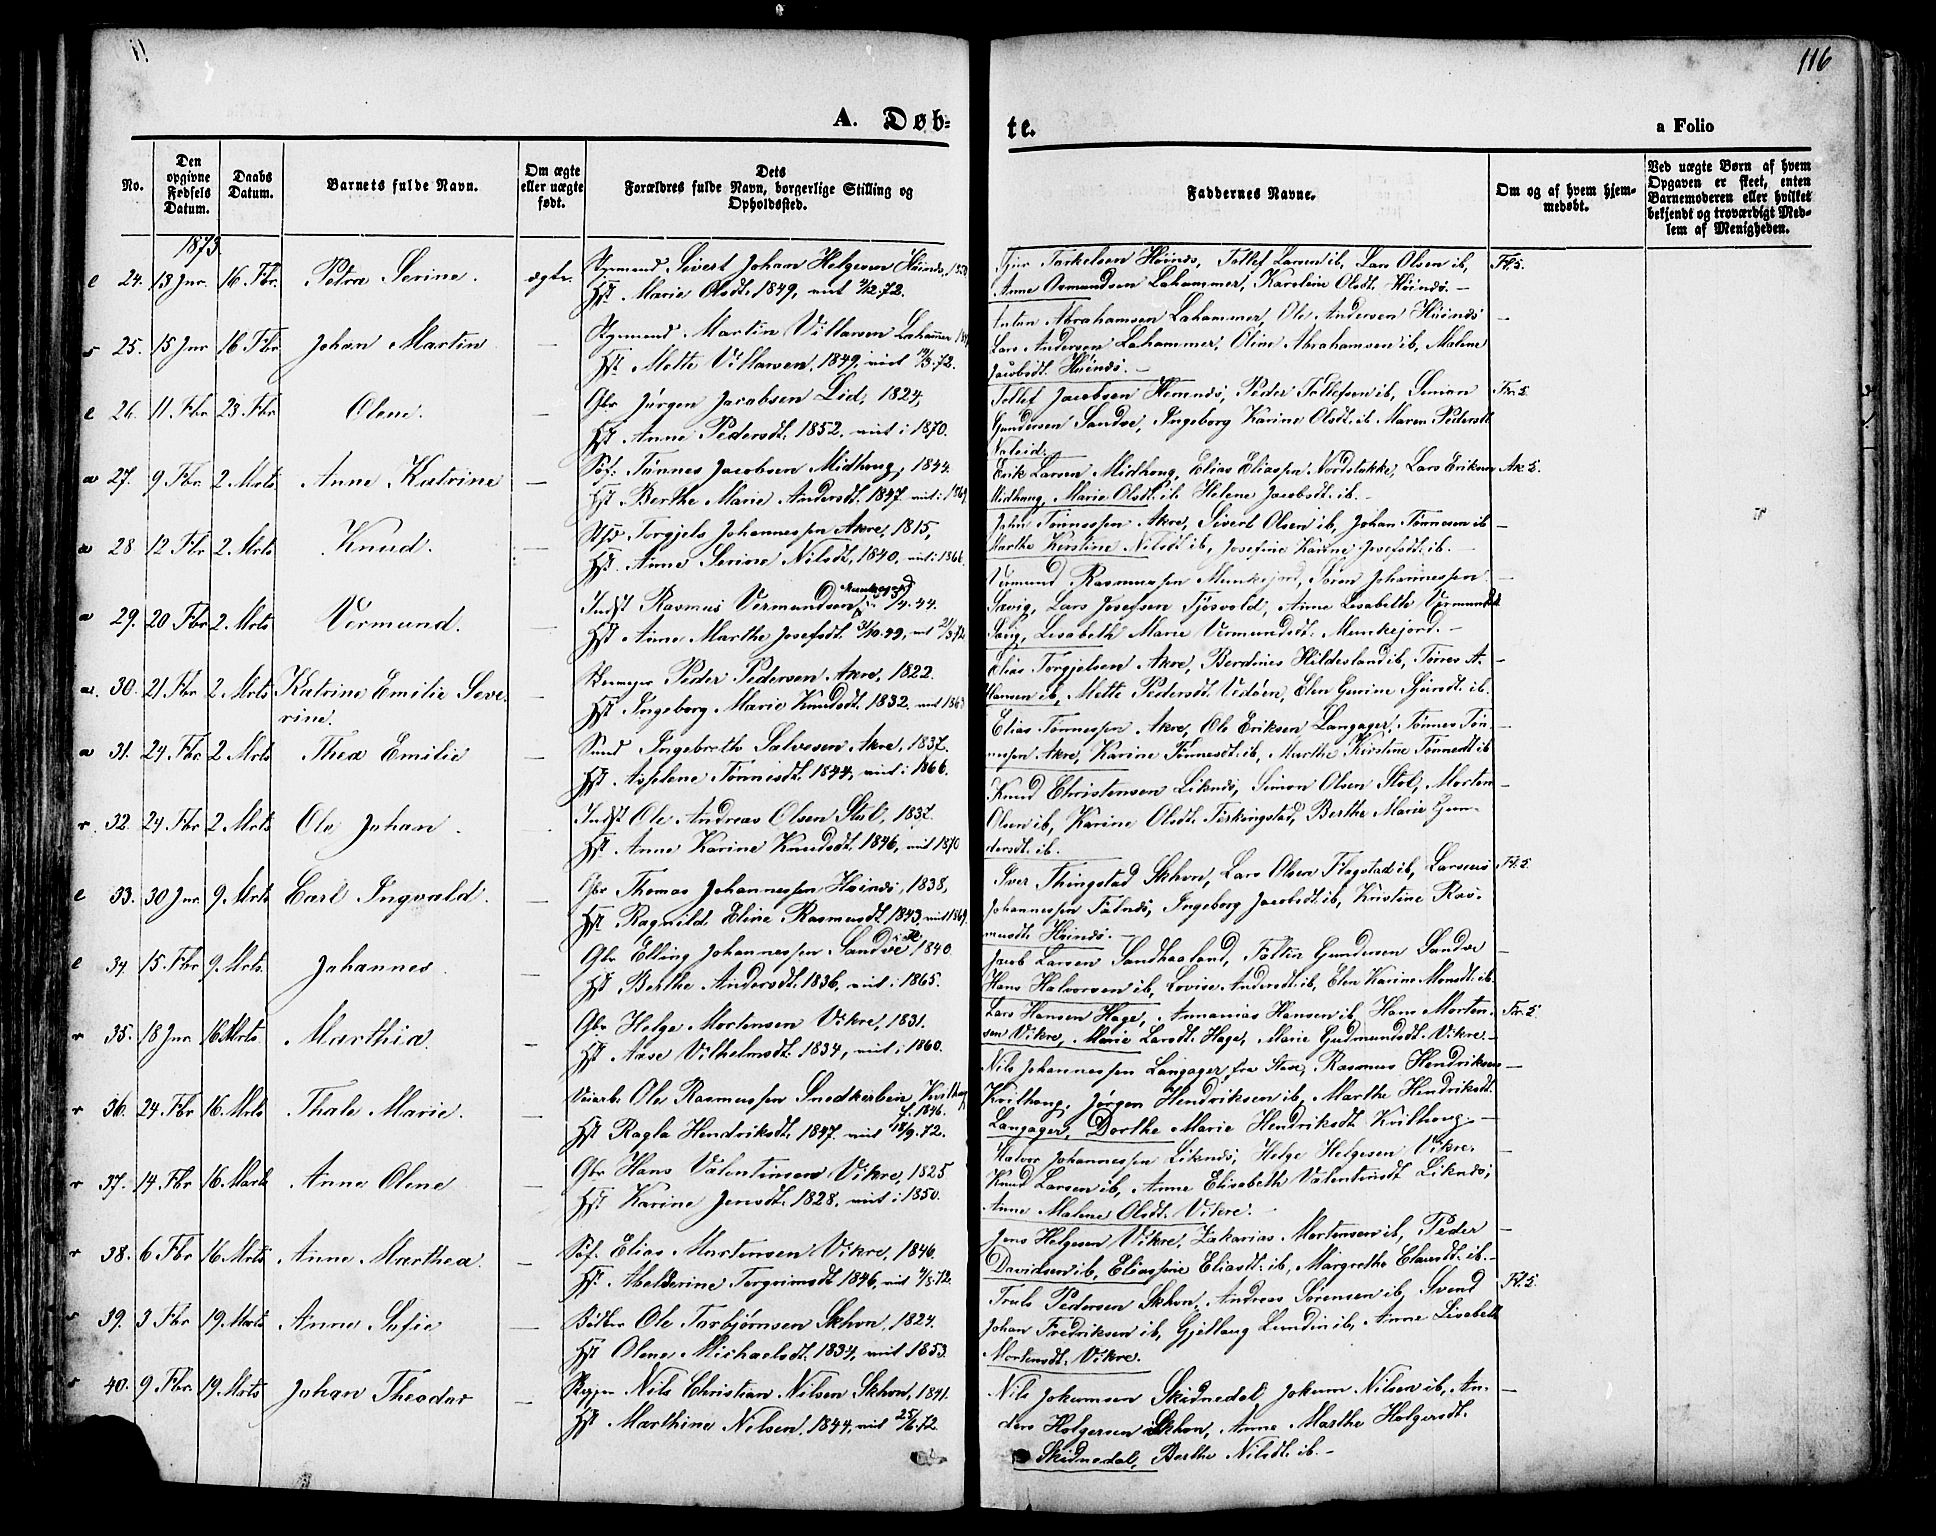 116
A. Døb-
te.
a Folio
No.
Den opgivne Fødsels Datum.
Daabs Datum.
Barnets fulde Navn.
Om ægte eller uægte født.
Dets Forældres fulde Navn, borgerlige Stilling og Opholdssted.
Faddernes Navne.
Om og af hvem hjemmedøbt.
Ved uægte Børn af hvem Opgaven er skeet, enten Barnemoderen eller hvilket bekjendt og troværdigt Medlem af Menigheden.
1873
24. 13 Jnr. 16 Fbr. Petra Serine. ægte. Sivert Johan Helgesen
Hst. Marie Olsdt. 1849, 72.
Tarkelsen Høinæs, Tollef Larsen ib, Lars Olsen ib,
Anne Osmundsen Lahammer, Karoline Olsdt. Høinæs. —
25. 15 Jnr 16 Fbr Johan Martin — Martin Villarsen Lahamer
Hst. Mette Villarsen, 1849, viet 72.
Abrahamsen Lahammer, Ole Andersen Høinæs —
Lars Andersen Lahammer, Oline Abrahamsen ib, Malene
Jacobsdt. Høinæs. —
26. 11 Fbr 23 Fbr Olene. — Gbr Jørgen Jacobsen Lid, 1824,
Hst. Anne Pedersdt. 1852, viet i 1870.
Tollef Jacobsen Hemnæs, Peder Tollefsen ib, Simon
Gundersen Sandve, Ingeborg Karine Olsdt. ib. Maren Pedersdt
27. 9 Fbr. 2 Mrts. Anne Katrine — Søf. Tønnes Jacobsen Midhoug, 1844.
Hst Berthe Marie Andersdt. 1847. viet i 1869
Erik Larsen Midhoug, Elias Eliassen Nordstokke, Lars Eriksen Ak. 5.
Midhoug, Marie Olsdt. ib. Helene Jacobsdt. ib. —
28 12 Fbr 2 Mrts Knud. — Torgjels Johannessen Akre, 1815,
Hst. Anne Serine Nilsdt, 1840, viet i 186
John Tønnessen Akre, Sivert Olsen ib, Johan Tønnesen ib —
Marthe Kirstine Nilsdt ib, Josefine Karine Josefsdt. ib. —
29. 20 Fbr 2. Mrts Vermund. — Indst Rasmus Vermundsen Munkejord 44.
Hst Anne Marthe Josefsdt. 31/10.49, viet 72
Vermund Rasmussen Munkejord, Søren Johannessen —
Sævig, Lars Josefsen Tjøsvold, Anne Lisabeth Vermundsdt
Lisabeth Marie Vermundsdt. Munkejord. —
30. 21 Fbr 2. Mrts Katrine Emilie Seve-
rine. — Peder Pedersen Akre, 1822.
Hst Ingeborg Marie Knudsdt. 1832. viet 186
Elias Torgjelsen Akre, Berdines Hildesland ib, Tørres A- —
Mette Pedersdt. Vedøen, Elen Gurine Sjursdt. ib.
31. 24 Fbr 2 Mrts Thea Emilie — Ingebreth Salvesen Akre, 1837.
Hst. Asselene Tønnesdt. 1844, viet i 1866.
Elias Tønnessen Akre, Ole Eriksen Langager, Tønnes Tøn- —
nessen Akre, Karine Tønnesdt. ib, Marthe Kirstine Tønnesdt ib
32. 24 Fbr 2 Mrts Ole Johan. Indst Ole Andreas Olsen Stol, 1837.
Hst. Anne Karine Knudsdt. 1846, viet 1870
Knud Christensen Liknæs, Simon Olsen Stol, Morten —
Olsen ib, Karine Olsdt. Ferkingstad, Berthe Marie Gun-
dersdt. ib.
33. 30 Jnr 9. Mrts Carl Ingvald. — Gbr Thomas Johannessen Høinæs, 1838,
Hst. Ragnild Eline Rasmusdt. 1843, viet 1869
Iver Thingstad Skhvn, Lars Olsen Flagstad ib, Larsens
Johannessen Falnæs, Ingeborg Jacobsdt. ib, Kristine Ras-
musdt. Høinæs. —
34 15. Fbr 9. Mrts. Johannes. — Gbr Elling Johannessen Sandve 1840.
Hst Berthe Andersdt. 1836, viet i 1865.
Jacob Larsen Sandhaaland, Gundersen Sandve —
Hans Halvorsen ib, Lovise Andersdt. ib, Elen Karine Monsdt. ib.
35. 18 Jnr 16. Mrts Marthia. — Gbr Helge Mortensen Vikre, 1831.
Hst. Aase Vilhelmsdt. 1834, viet i 1860.
Lars Hansen Hage, Annanias Hansen ib, Hans Morten-
sen Vikre, Marie Larsdt. Hage, Marie Gudmundsdt. Vikre. —
36. 24 Fbr 16. Mrts Thale Marie. — Ole Rasmussen Snedkerbein,
f. 1846.
Hst Ragla Hendriksdt. 1847. viet 18/9. 72.
Nils Johannessen Langager, fra Rasmus Hendriksen —
Kvilhoug, Jørgen Hendriksen ib, Marthe Hendriksdt.
Langager, Dorthe Marie Hendriksdt. Kvilhoug. —
37. 14 Fbr 16. Marts Anne Olene — Gbr Hans Valentinsen Vikre, 1825
Hst Karine Jensdt. 1828, viet i 1850.
Halvor Johannessen Liknæs, Helge Helgesen Vikre. —
Knud Larsen ib, Anne Elisabeth Valentinsdt Liknæs,
Anne Malene Olsdt. Vikre. —
38. 6 Fbr 16. Mrts Anne Marthea. — Søf. Elias Mortensen Vikre, 1846.
Hst. Abelderine Torgrimsdt. 1846, viet 72.
Jens Helgesen Vikre, Zakarias Mortensen ib, Peder —
Davidsen ib, Eliassine Eliasdt. ib, Margrethe Clausdt. ib. —
39. 3 Fbr 19. Marts Anna Sofie — Ole Torbjørnsen Skhvn, 1824.
Hst Olene Michaelsdt. 1834, viet 1853.
Truls Pedersen Skhvn, Andreas Sørensen ib, Svend
Johan Fredriksen ib, Gjellaug Lundin ib, Anne Lisabeth
Mortensdt. Vikre.
40. 9 Fbr. 19. Mrts Johan Theodor — Nils Christian Nilsen Skhvn, 1841.
Hst. Marthine Nilsen, 1844, viet 72
Nils Jokumsen Skidnedal, Jokum Nilsen ib, An- —
ders Holgersen Skhvn, Anne Marthe Holgersdt.
Skidnedal, Berthe Nilsdt. ib. —